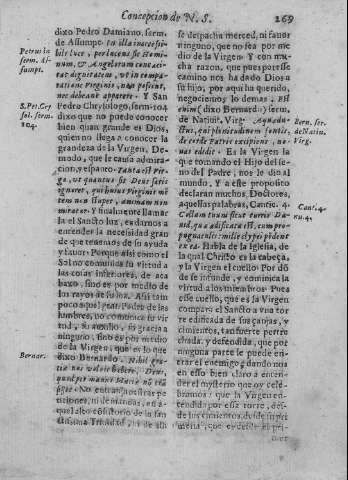 Concepcion de N. S. 269
dixo Pedro Damiano, serm.
de Assumpt. in illa inaccessi-
bili luce, perlucens sic homi-
num, & Angelorum
dignitatem, ut in compa-
ratione Virginis, nec possint,
nec debeant apparere. Y San
Pedro Chrysologo, serm. 104
dixo que no puede conocer
bien quan grande es Dios,
quien no llega a conocer la
grandeza de la Virgen. De-
modo, que le causa admira-
cion, y espanto.
ut quantus sit Deus satis
ignoret, qui huius Virginis me
tem non stupet, animam non
miratur. Y finalmente llamar
la el Sancto luz, es darnos a
entender la necesidad gran
de que tenemos de su ayuda
y favor: Porque assi como el
Sol no comunica su virtud a
las cosas inferiores, de aca
baxo, sino es por medio de
los rayos de su luz. Assi tam
poco aquel gran Padre de las
lumbres, no comunica su vir
tud, su auxilio, su gracia a
ninguno, sino es por medio
de la Virgen, que es lo que
dixo Bernardo. Nihil gra-
tiæ nos voluit habere Deus,
quod per manus Mariæ no trā
siret. No entran nuestras pe
ticiones, ni demandas, en a-
quel alto consistorio de la san
ctissima Trinidad, ni de alli
Petrus in
serm. As-
sumpt.
S. Pet. Cry
sol. serm.
104.
Bernar.
se despacha merced, ni favor
ninguno, que no sea por me
dio de la Virgen. Y con mu
cha razon, que pues por esse
camino nos ha dado Dios a
su hijo, por aqui ha querido,
negociemos lo demas.
enim (dixo Bernardo) serm.
de Nativit. Virg. Aquædu-
ctus, qui plenitudinem fontis,
de corde Patris excipiens, no-
vis edidit. Es la Virgen la
que tomando el Hijo del se-
no del Padre, nos le dio al
mundo. Y a este proposito
declaran muchos, Doctores,
aquellas palabras, Cantic. 4.
Collum tuum sicut turris Da-
vid, quæ ædificata est, cum pro-
pugnaculis: mille clypei pendent
ex ea. Habla de la Iglesia, de
la qual Christo es la cabeça,
y la Virgen el cuello. Por dō
de se infunde, toda la virtud
a los miembros. Pues
esse cuello, que es la Virgen
comparo el Sancto a una tor
re edificada de sus çanjas, y
cimientos, tan fuerte pertre
chada, y defendida, que por
ninguna parte le puede en-
trar el enemigo dando nos
en esso bien claro a enten-
der el mysterio que oy cele
bramos: que la Virgen en-
tendida por esse torre, des-
de los cimientos, desde su pri
Bern. ser.
de Nativ.
Virg.
Cant. 4.
nu. 4.